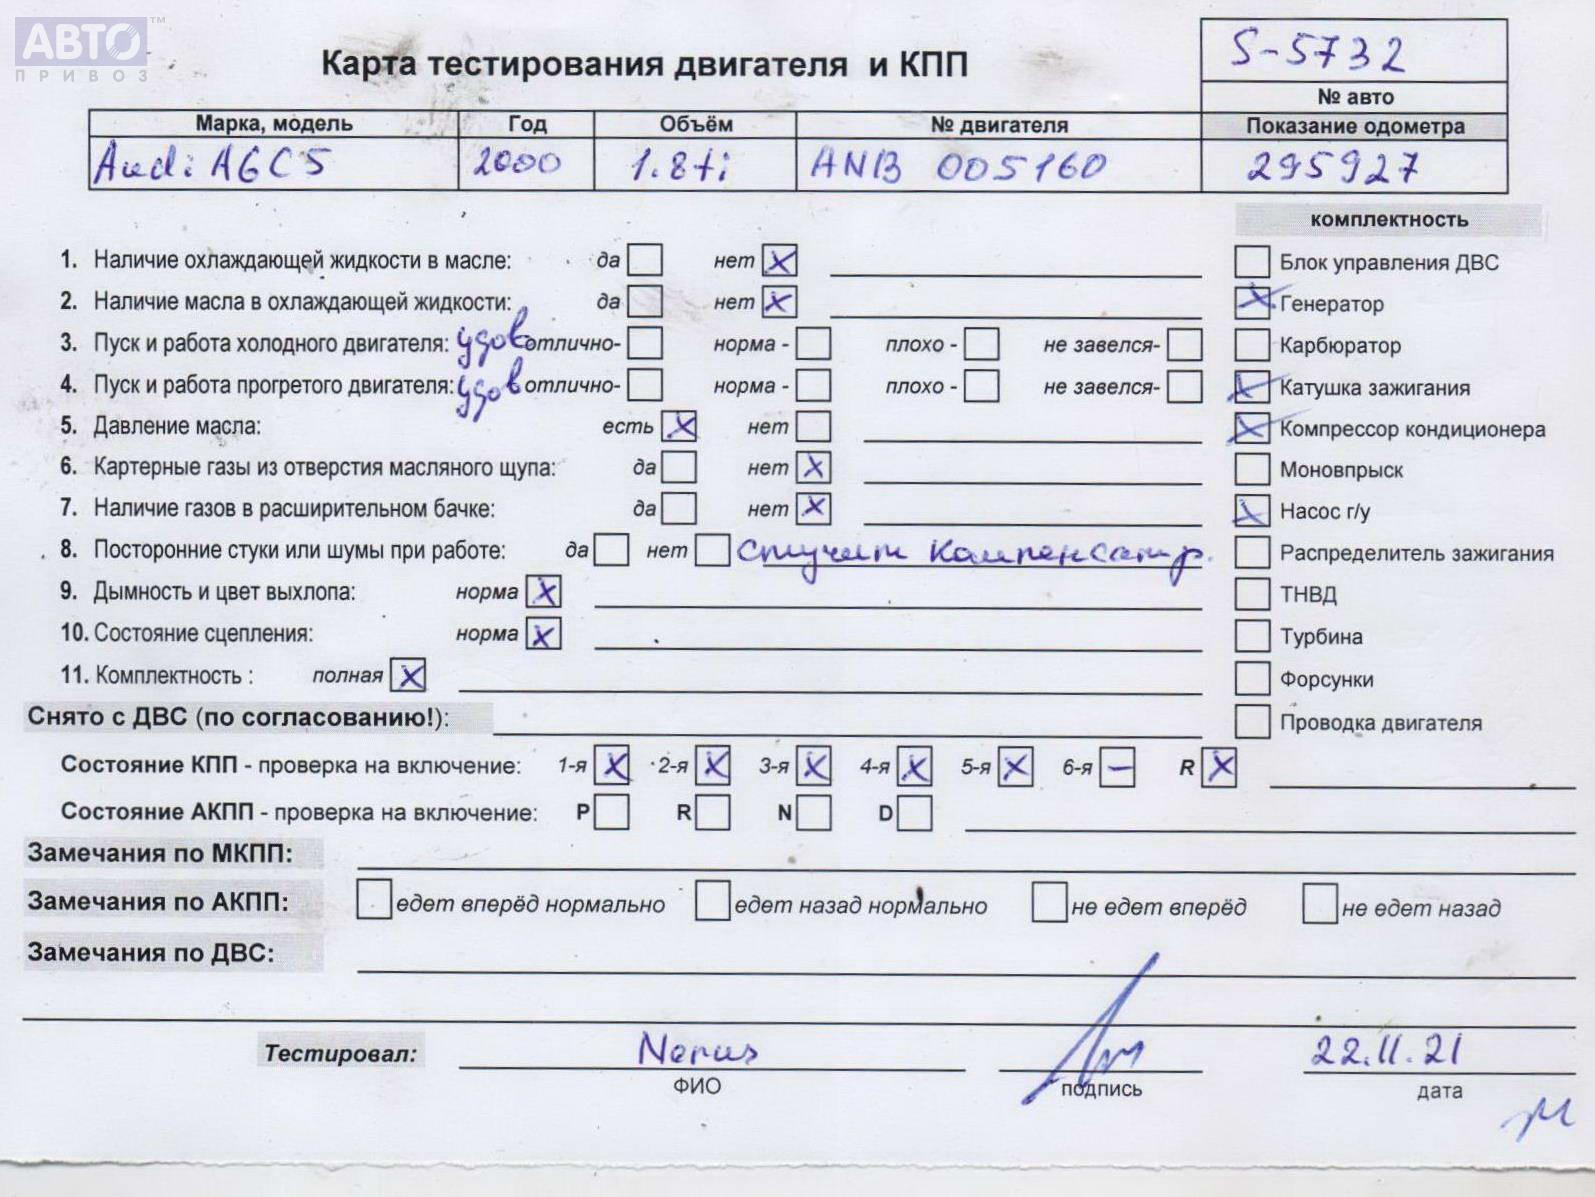 АВТО™
ПРИВОЗ
Карта тестирования двигателя и КПП
S-5732
№ авто
Марка, модель Год Объём № двигателя Показание одометра
Audi A6C5 2000 1.8ti ANB 005160 295927
комплектность
1. Наличие охлаждающей жидкости в масле: да нет X
Блок управления ДВС
2. Наличие масла в охлаждающей жидкости: да нет X
X Генератор
3. Пуск и работа холодного двигателя: удов отлично- норма - плохо - не завелся-
Карбюратор
4. Пуск и работа прогретого двигателя: удов отлично- норма - плохо - не завелся-
X Катушка зажигания
5. Давление масла: есть X нет
X Компрессор кондиционера
6. Картерные газы из отверстия масляного щупа: да нет X
Моновпрыск
7. Наличие газов в расширительном бачке: да нет X
X Насос г/у
8. Посторонние стуки или шумы при работе: да нет стучит компенсатр.
Распределитель зажигания
9. Дымность и цвет выхлопа: норма X
ТНВД
10. Состояние сцепления: норма X
Турбина
11. Комплектность : полная X
Форсунки
Снято с ДВС (по согласованию!):
Проводка двигателя
Состояние КПП - проверка на включение: 1-я X 2-я X 3-я X 4-я X 5-я X 6-я – R X
Состояние АКПП - проверка на включение: P R N D
Замечания по МКПП:
Замечания по АКПП: едет вперёд нормально едет назад нормально не едет вперёд не едет назад
Замечания по ДВС:
Тестировал: 22.11.21
ФИО подпись дата